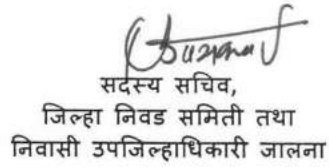 सदस्य सचिव,
जिल्हा निवड समिती तथा
निवासी उपजिल्हाधिकारी जालना